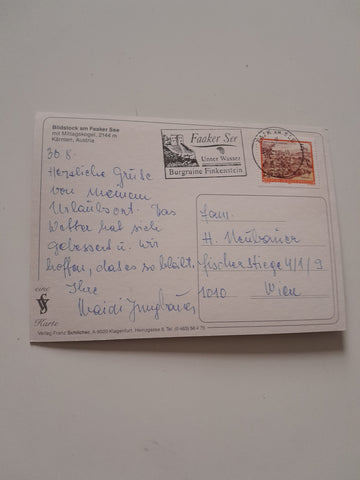 Bildstock am Faaker See
mit Mittagskogel, 2144 m
Kärnten, Austria
Faaker See
Unter Wasser
Burgruine Finkenstein
30.8.
Herzliche Grüße
von meinem
Urlaubsort. Das
Wetter hat sich
gebessert u. wir
hoffen, dass es so bleibt.
Ihre
Jungbauer
Fam.
H. Neubauer
Fischerstiege 4/1/9
1010 Wien
eine
Karte
Verlag Franz Schilcher, A-9020 Klagenfurt,